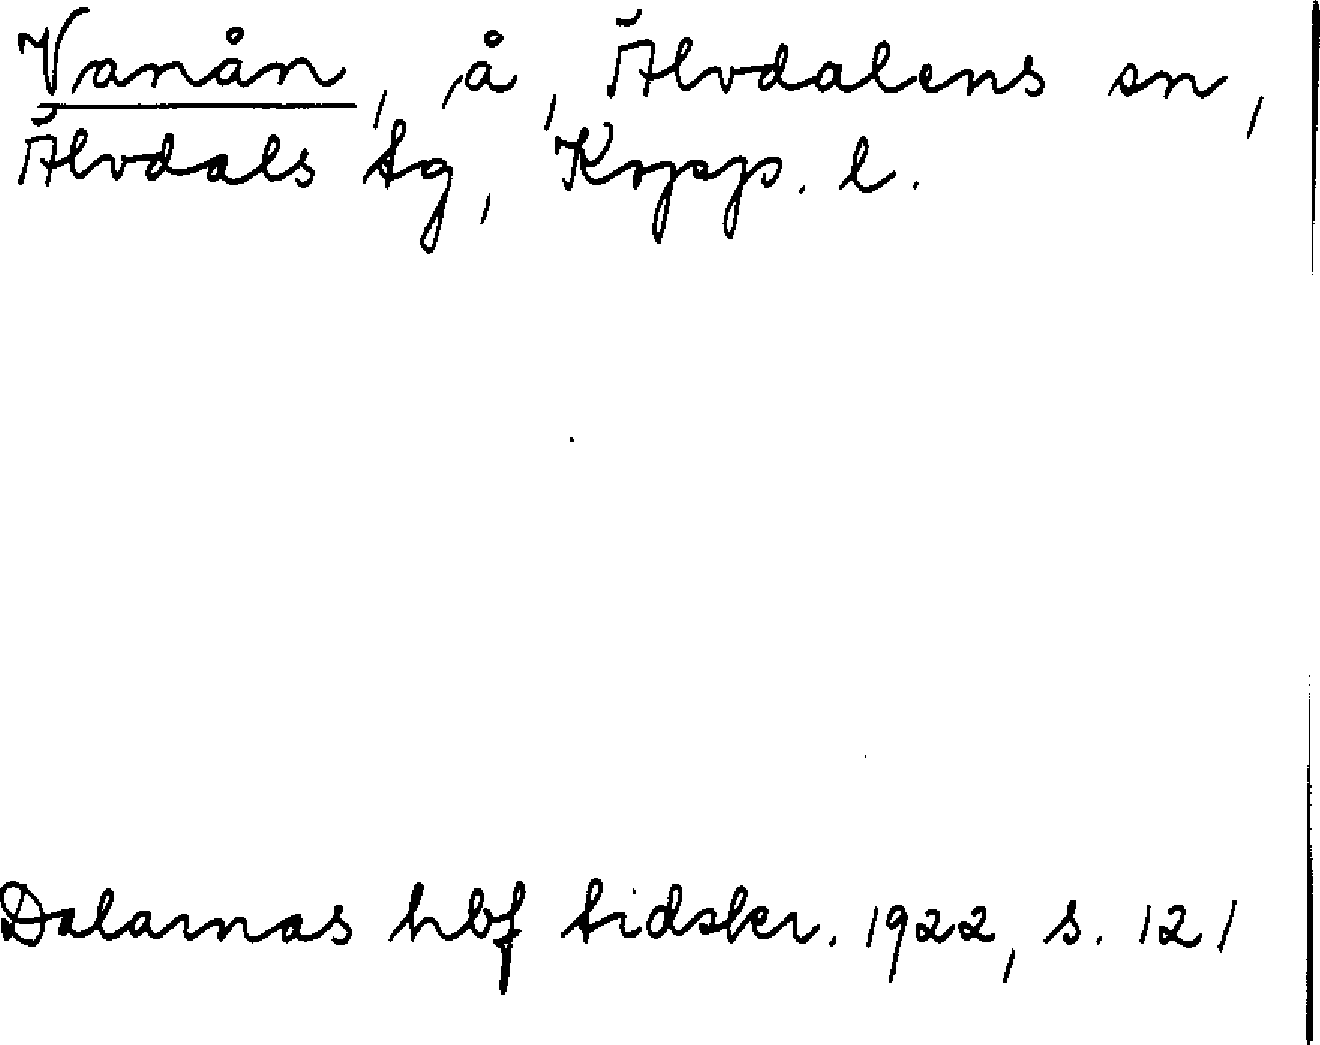 Vanån, å, Älvdalens sn,
Älvdals tg, Kopp. l.
Dalarnas hbf tidskr. 1922, s. 121